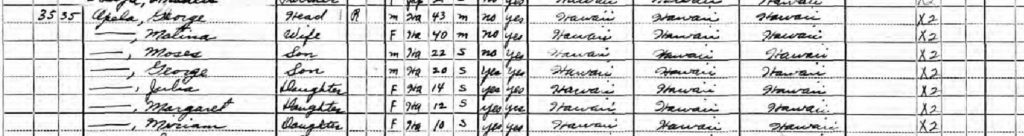 35 35 Apela, George Head R m Ha 43 m no yes Hawaii Hawaii Hawaii X2
—, Matina Wife F Ha 40 m no yes Hawaii Hawaii Hawaii X2
—, Moses Son m Ha 22 S no yes Hawaii Hawaii Hawaii X2
—, George Son m Ha 20 S yes yes Hawaii Hawaii Hawaii X2
—, Julia Daughter F Ha 14 S yes yes Hawaii Hawaii Hawaii X2
—, Margaret Daughter F Ha 12 S yes yes Hawaii Hawaii Hawaii X2
—, Miriam Daughter F Ha 10 S yes yes Hawaii Hawaii Hawaii X2